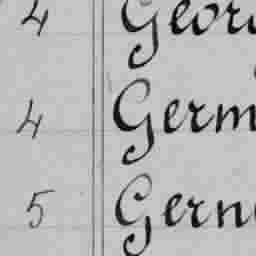 4 Geor
4 Germ
5 Gern